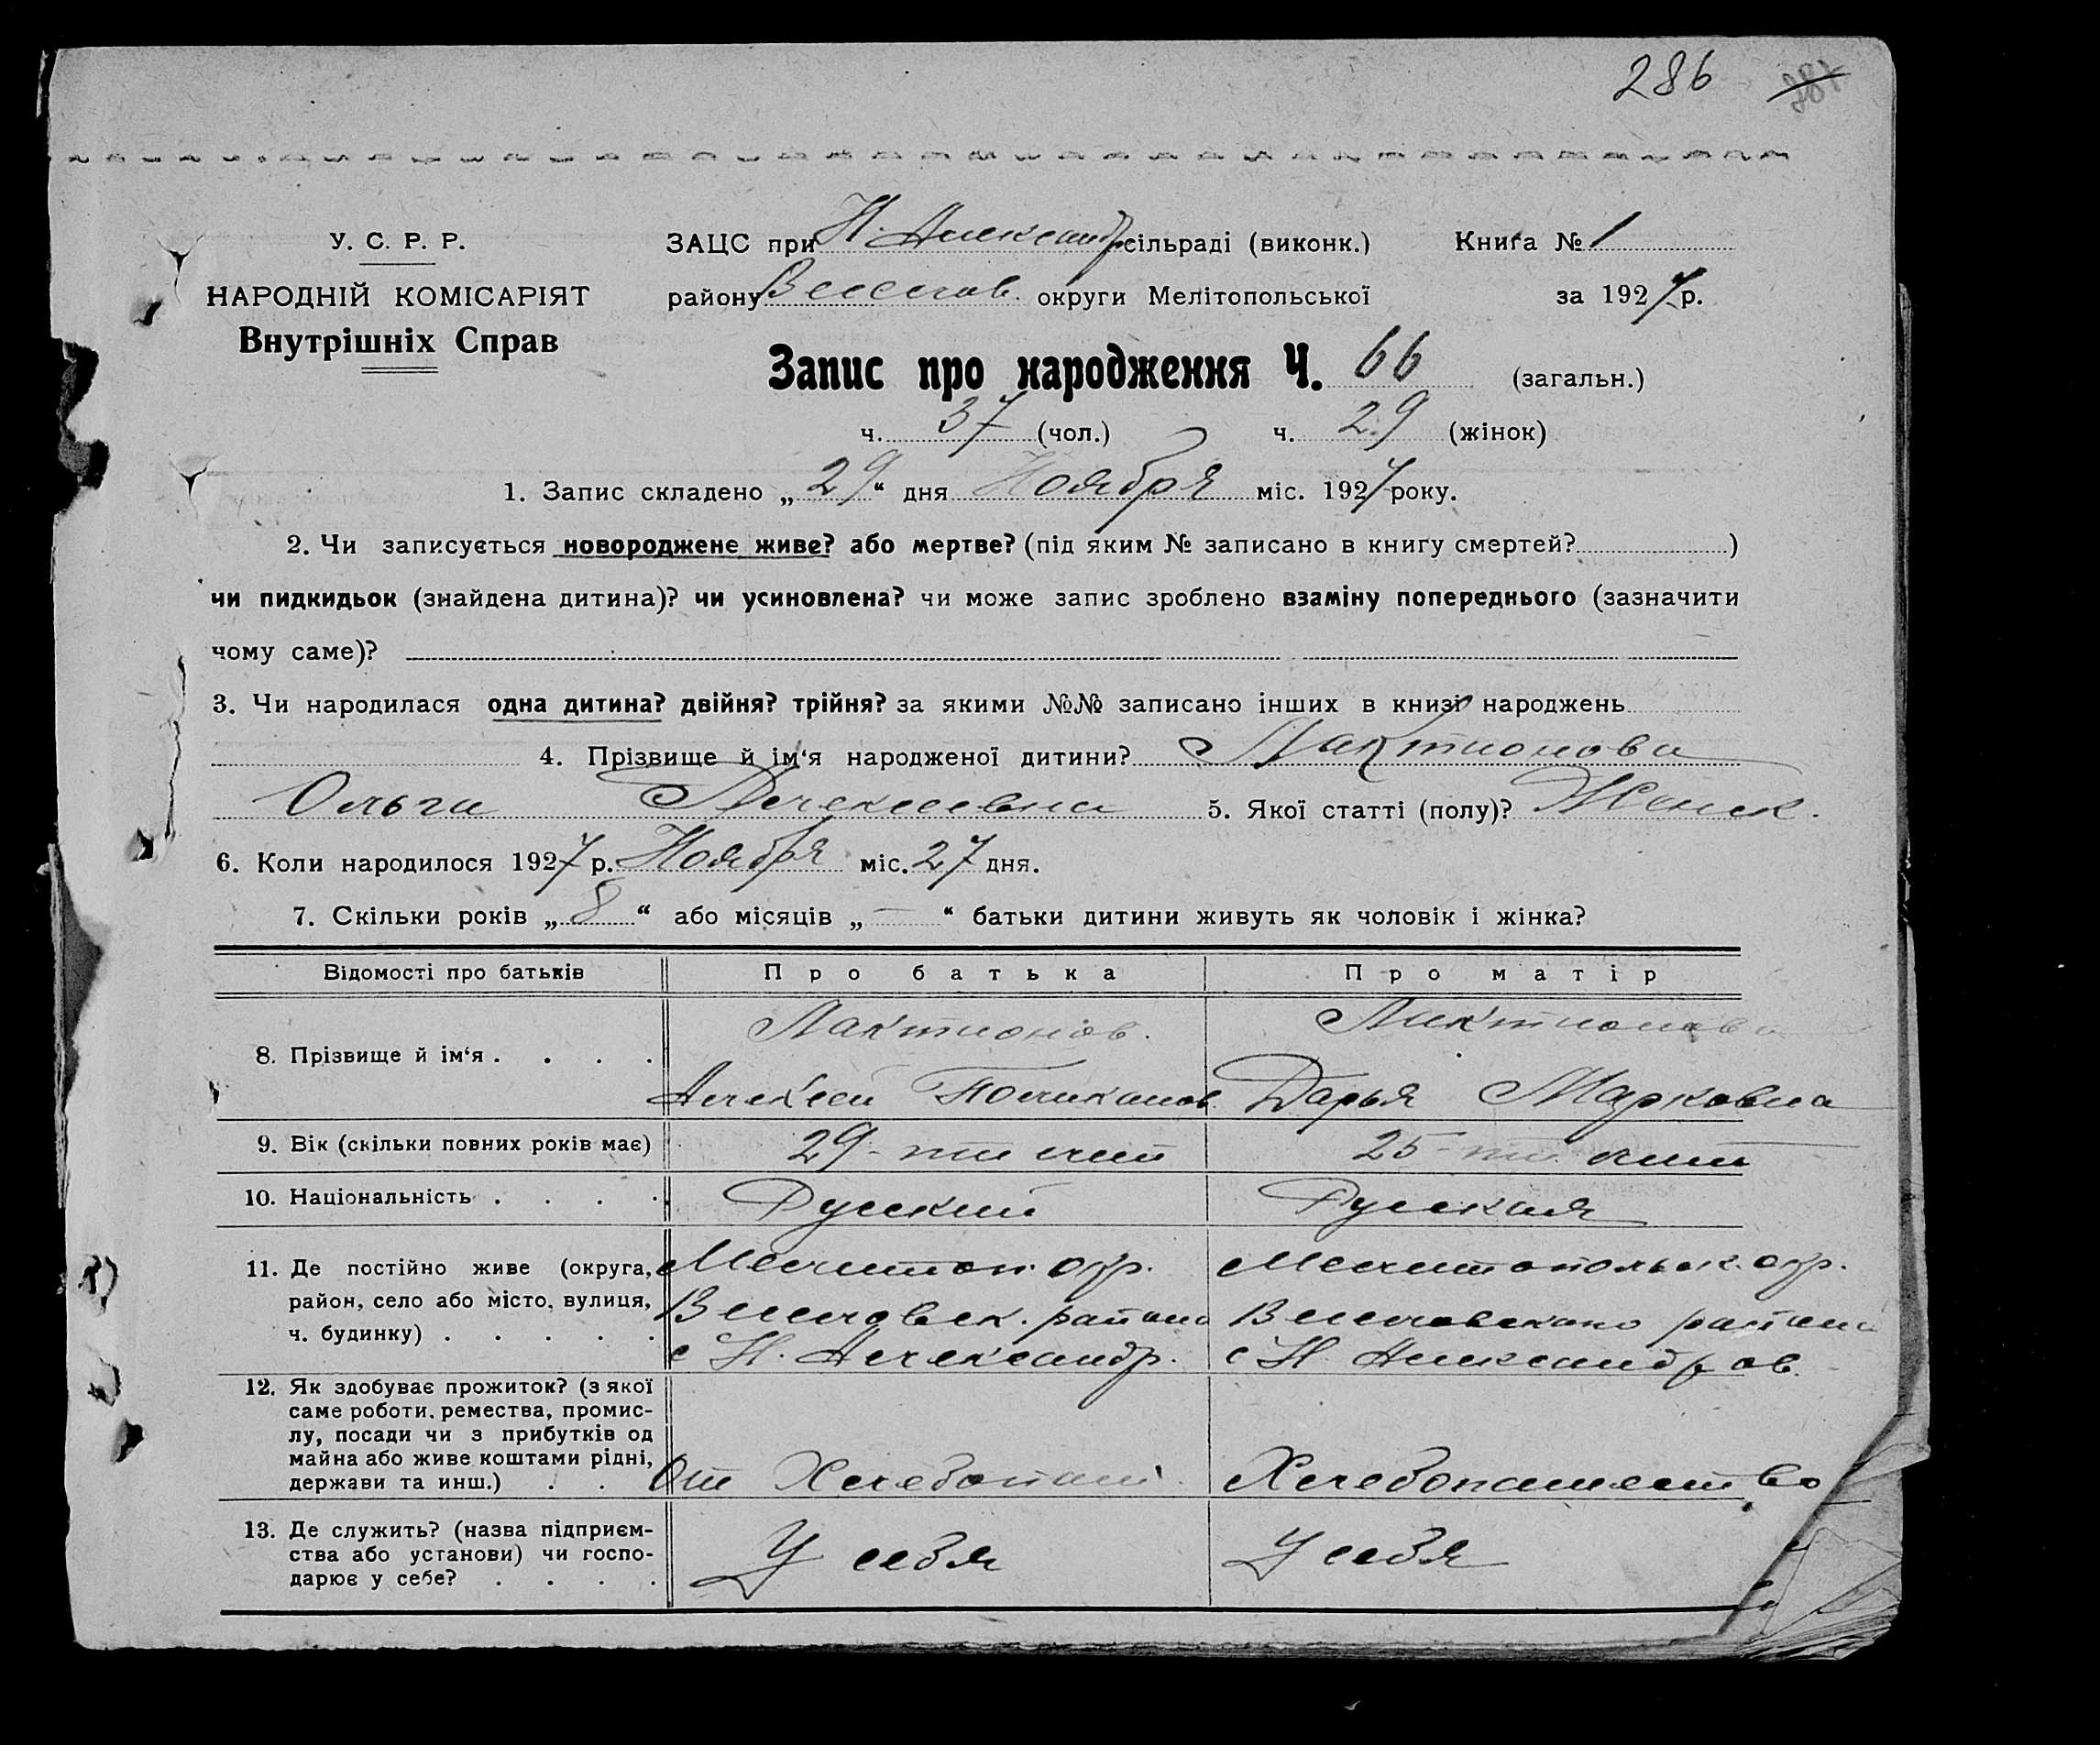 286
У. С. Р. Р.
НАРОДНІЙ КОМІСАРІЯТ
Внутрішніх Справ
ЗАЦС при Н. Александр. сільраді (виконк.) Книга № 1
району Веселов. округи Мелітопольської за 1927 р.
Запис про народження Ч. 66 (загальн.)
ч. 37 (чол.) ч. 29 (жінок)
1. Запис складено „ 29 “ дня Ноября міс. 1927 року.
2. Чи записується новороджене живе? або мертве? (під яким № записано в книгу смертей? )
чи пидкидьок (знайдена дитина)? чи усиновлена? чи може запис зроблено взаміну попереднього (зазначити
чому саме)?
3. Чи народилася одна дитина? двійня? трійня? за якими №№ записано інших в книзі народжень
4. Прізвище й ім‘я народженої дитини? Лактионова
Ольга Алексеевна 5. Якої статті (полу)? Женск.
6. Коли народилося 1927 р. Ноября міс. 27 дня.
7. Скільки років „ 8 “ або місяців „ — “ батьки дитини живуть як чоловік і жінка?
Відомості про батьків Про батька Про матір
8. Прізвище й ім‘я . . . . Лактионов. Лактионова
Алексей Дарья Марковна
9. Вік (скільки повних років має) 29-ти лет 25-ти лет
10. Національність . . . . Русский Русская
11. Де постійно живе (округа, Мелитоп. окр. Мелитопольск. окр.
район, село або місто, вулиця, Веселовск. района Веселовского района
ч. будинку) . . . . . с Н. Александр. с Н. Александров.
12. Як здобуває прожиток? (з якої
саме роботи, ремества, промис-
лу, посади чи з прибутків од
майна або живе коштами рідні,
держави та инш.) . . От Хлебопаш. Хлебопашество
13. Де служить? (назва підприєм-
ства або установи) чи госпо- У себя У себя
дарює у себе? . . . .